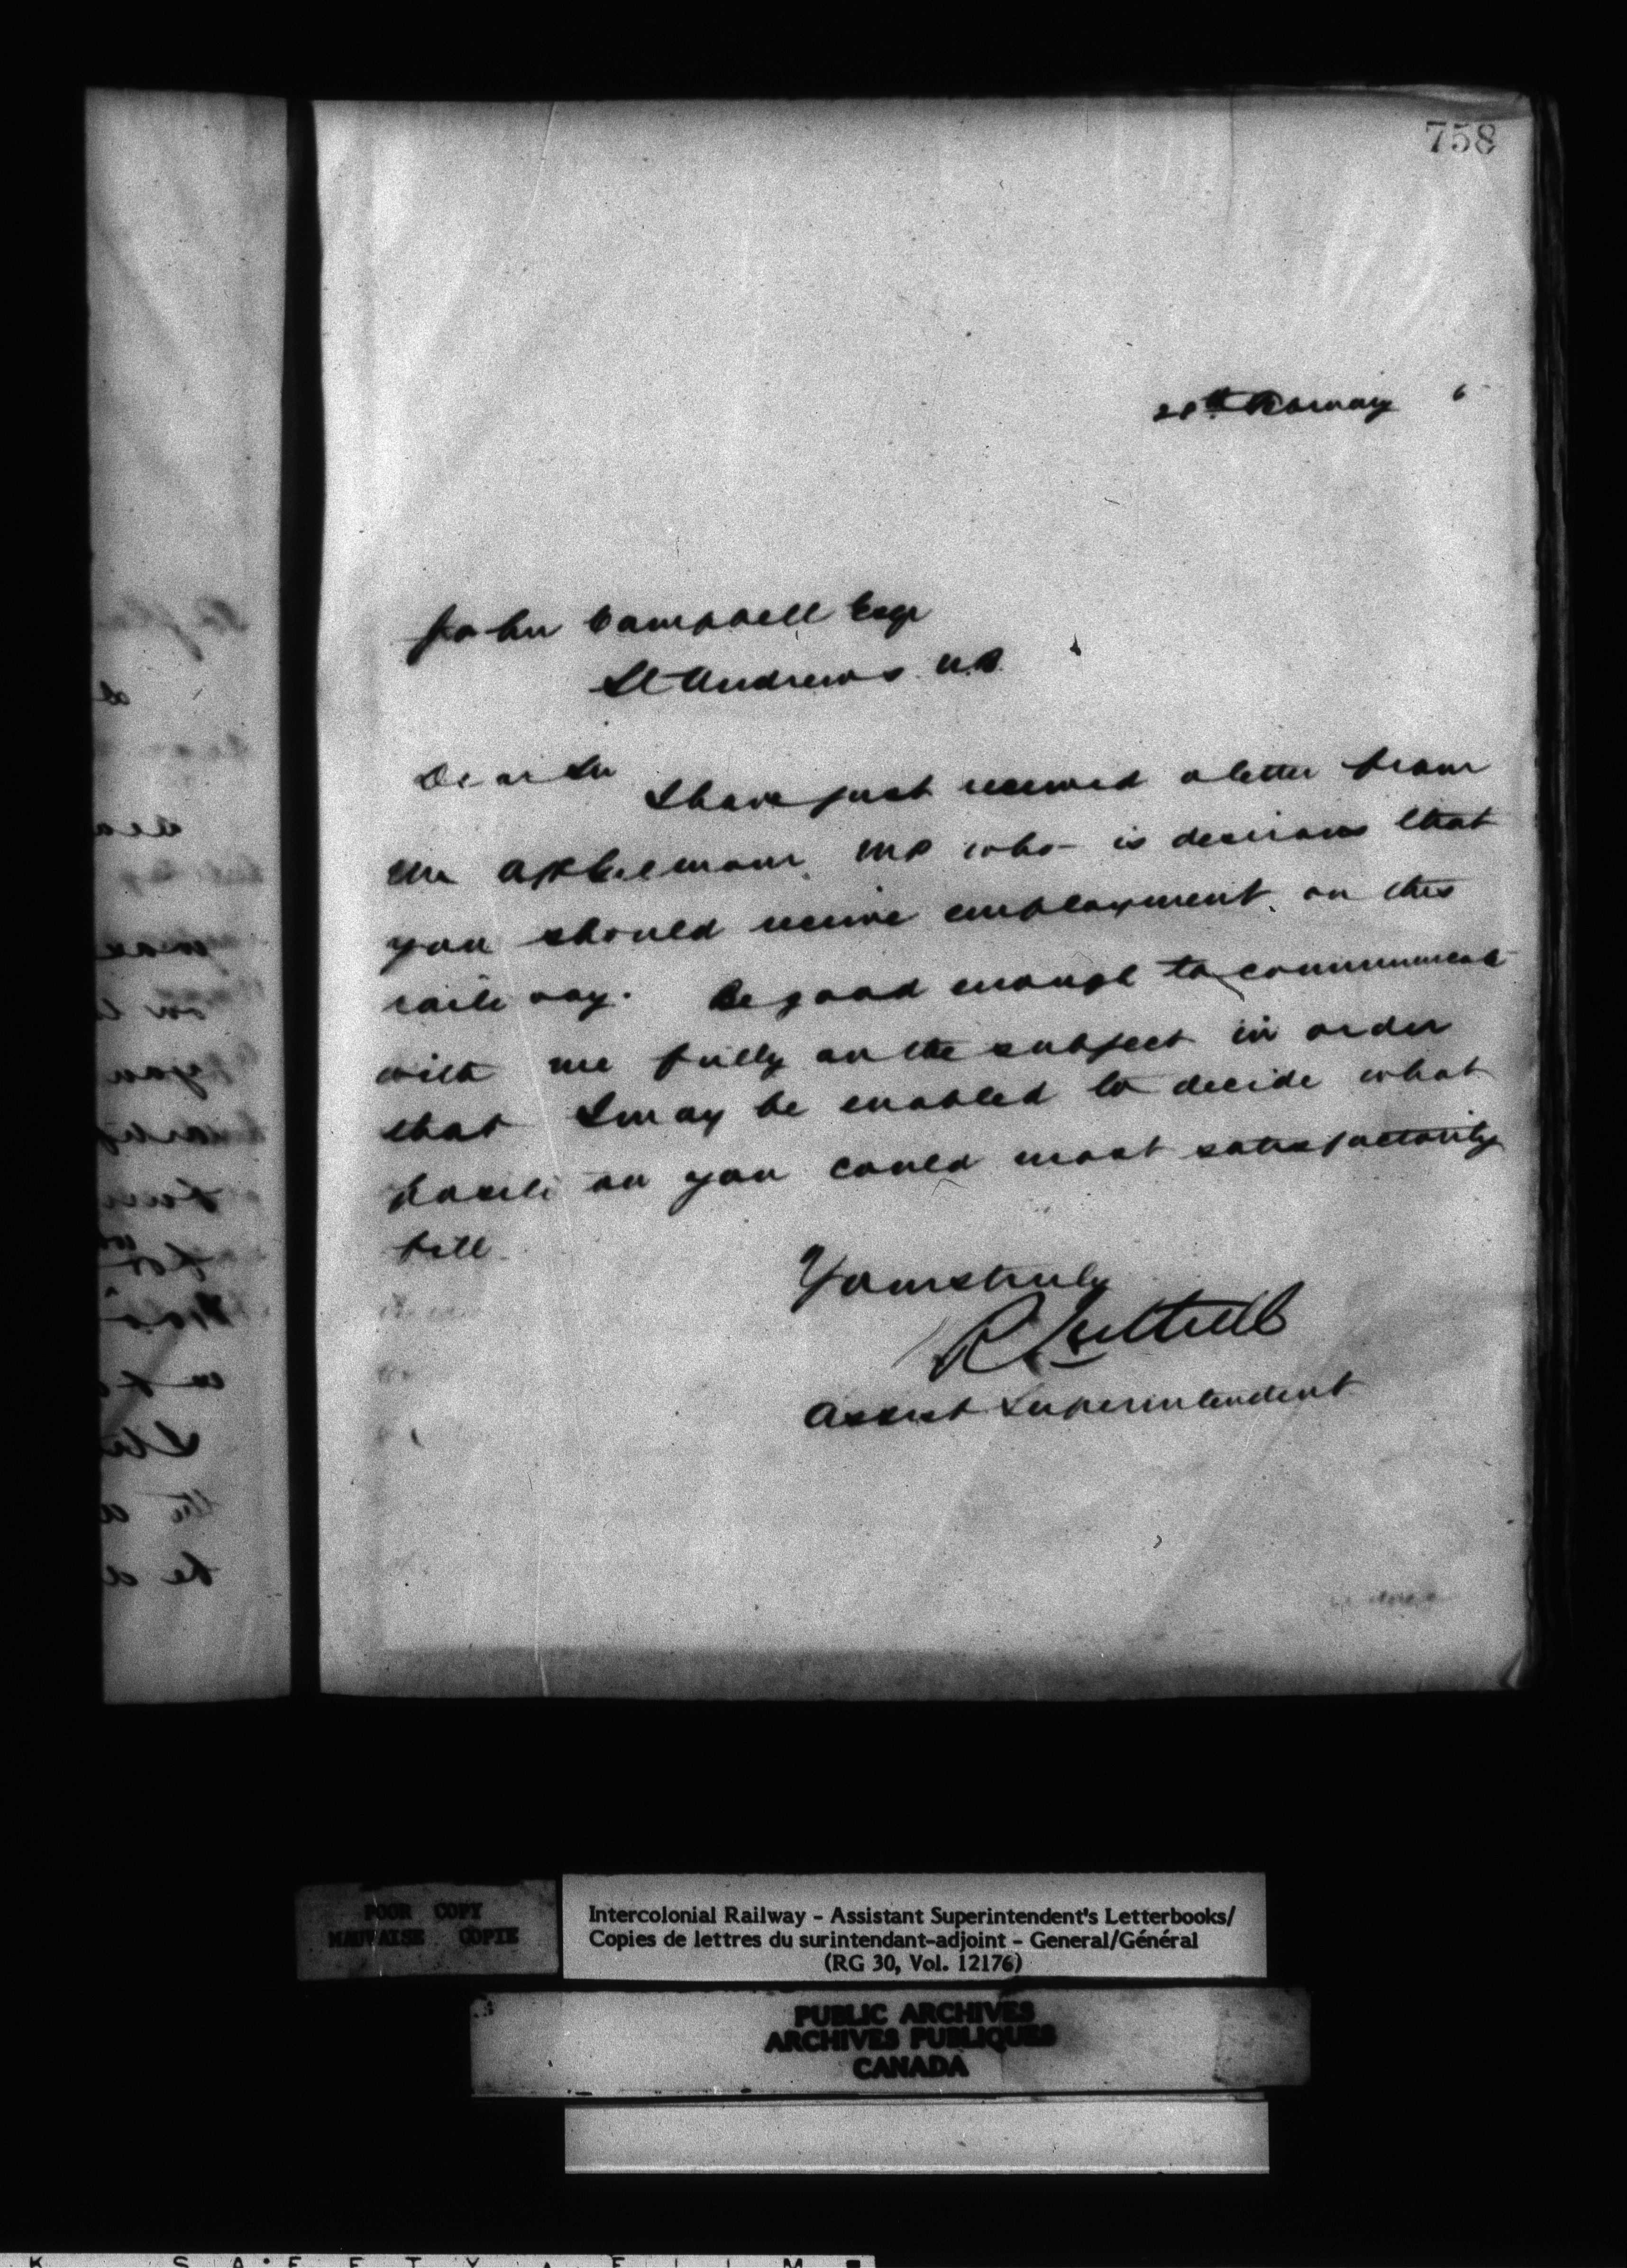 758
28th February 6
John Campbell Esqr
St Andrews N.B.
Dear Sir
I have just received a letter from
Mr MP who is desirous that
you should receive employment on this
railway. Be good enough to communicate
with me fully on the subject in order
that I may be enabled to decide what
position you could most satisfactorily
fill
Yours truly
R. Luttrell
Assist Superintendent
POOR COPY
MAUVAISE COPIE
Intercolonial Railway - Assistant Superintendent's Letterbooks/
Copies de lettres du surintendant-adjoint - General/Général
(RG 30, Vol. 12176)
PUBLIC ARCHIVES
ARCHIVES PUBLIQUES
CANADA
K SAFETY FILM